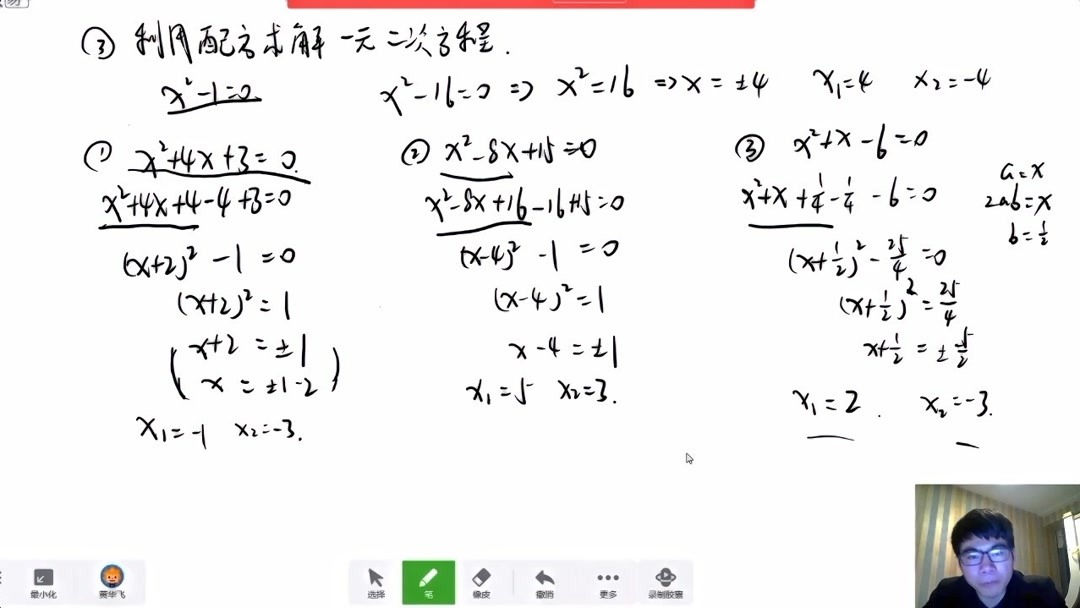 ③ 利用配方求解一元二次方程.
x²-1=0
x²-16=0 => x²=16 => x=±4 x₁=4 x₂=-4
① x²+4x+3=0.
x²+4x+4-4+3=0
(x+2)²-1=0
(x+2)²=1
(x+2=±1
x=±1-2)
x₁=-1 x₂=-3.
② x²-8x+15=0
x²-8x+16-16+15=0
(x-4)²-1=0
(x-4)²=1
x-4=±1
x₁=5 x₂=3.
③ x²+x-6=0
x²+x+1/4-1/4-6=0
(x+1/2)²-25/4=0
(x+1/2)²=25/4
x+1/2=±5/2
x₁=2. x₂=-3.
a=x
2ab=x
b=1/2
最小化
黄华飞
选择
笔
橡皮
撤消
更多
录制胶囊